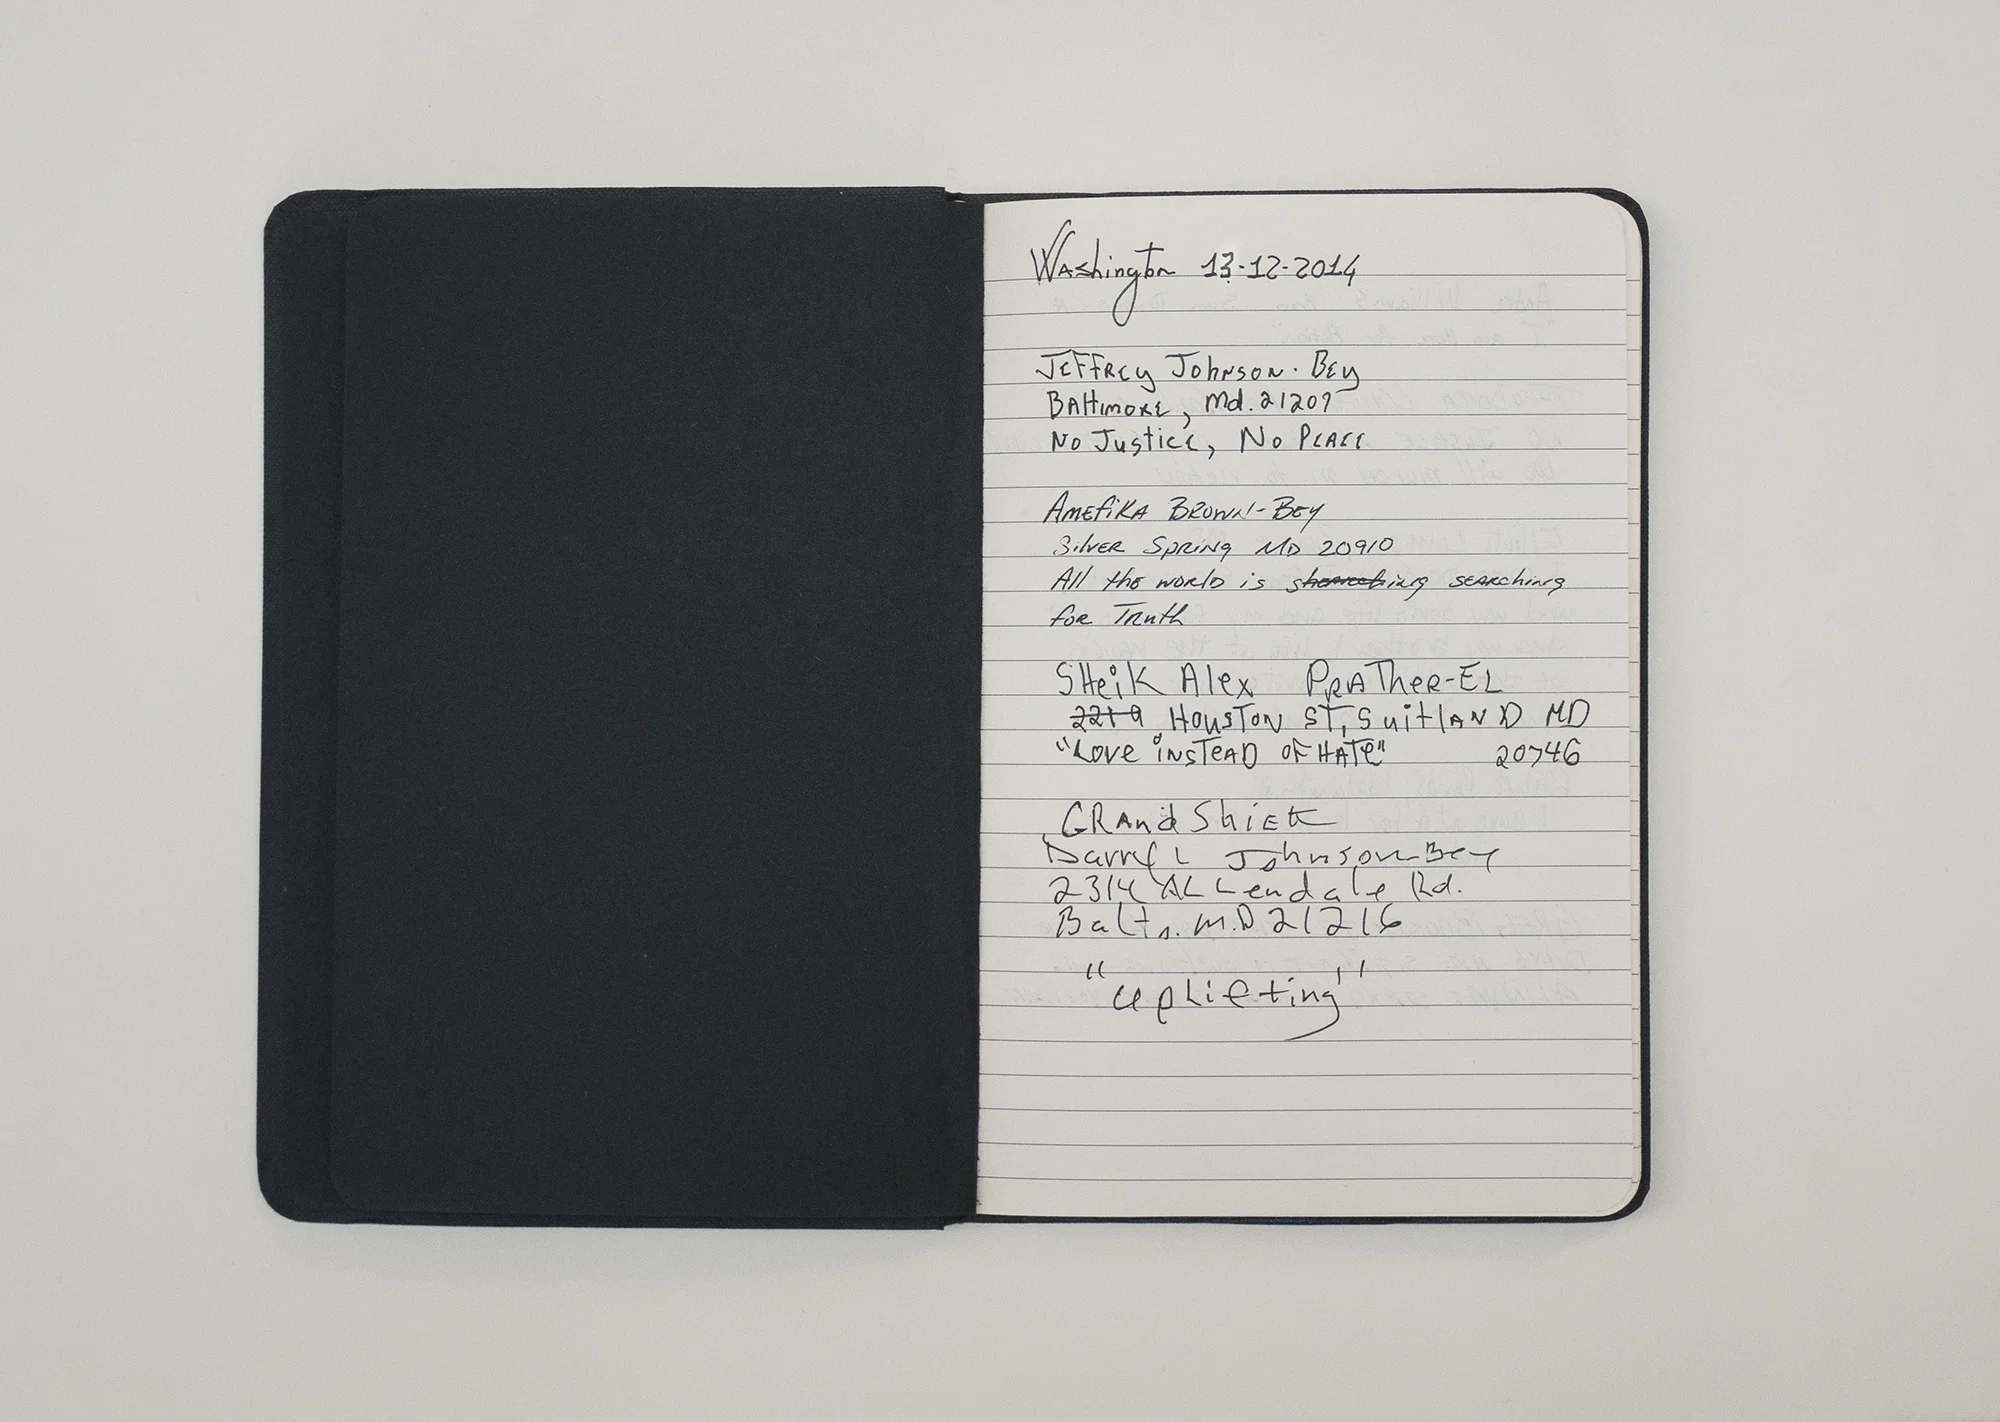 Washington 13-12-2014
JEFFREY JOHNSON-BEY
BALTIMORE, Md. 21207
NO JUSTICE, NO PEACE
AMEFIKA BROWN-BEY
SILVER SPRING MD 20910
All the world is searching
for Truth
SHeiK Alex PRATHer-EL
2219 HOUSTON ST, SuitlAND MD
"Love iNSTEAD OF HATE" 20746
GRAnd Shiek
Darryl L Johnson-Bey
2314 ALLendale Rd.
Balto. M.D 21216
"upLifting"